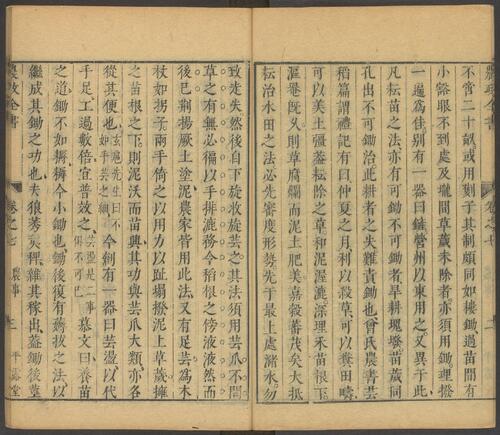 不啻二十畝或用刻子其制頗同如樓鋤過苗間有
小豁眼不到處及壠間草薉未除者亦須用鋤理撥
一遍為佳別有一器曰鏟營州以東用之又異于此
凡耘苗之法亦有可鋤不可鋤者旱耕塊墢苗薉同
孔出不可鋤治此耕者之失難責鋤也曾氏農書芸
稻篇謂禮記有曰仲夏之月利以殺草可以糞田疇
可以美土疆蓋耘除之草和泥渥漉深埋禾苗根下
漚罨既久則草腐爛而泥土肥美嘉穀蕃茂矣大抵
耘治水田之法必先審度形勢先于最上處潴水勿
致走失然後自下旋放旋芸之其法須用芸爪不問
草之有無必徧以手排漉務令稻根之傍液液然而
後已荆揚厥土塗泥農家皆用此法又有足芸為木
杖如拐子兩手倚之以用力以趾塌撥泥上草薉擁
之苗根之下則泥沃而苗興其功與芸爪大類亦各
從其便也玄扈先生曰不如手芸之細今剏有一器曰芸盪以代
手足工過數倍宜普效之芸盪是二事俱不可已慕文曰養苗
之道鋤不如耨耨今小鋤也鋤後復有薅拔之法以
繼成其鋤之功也夫稂莠荑稗雜其稼出蓋鋤後莖
農政全書 卷之七 農事 三 平露堂